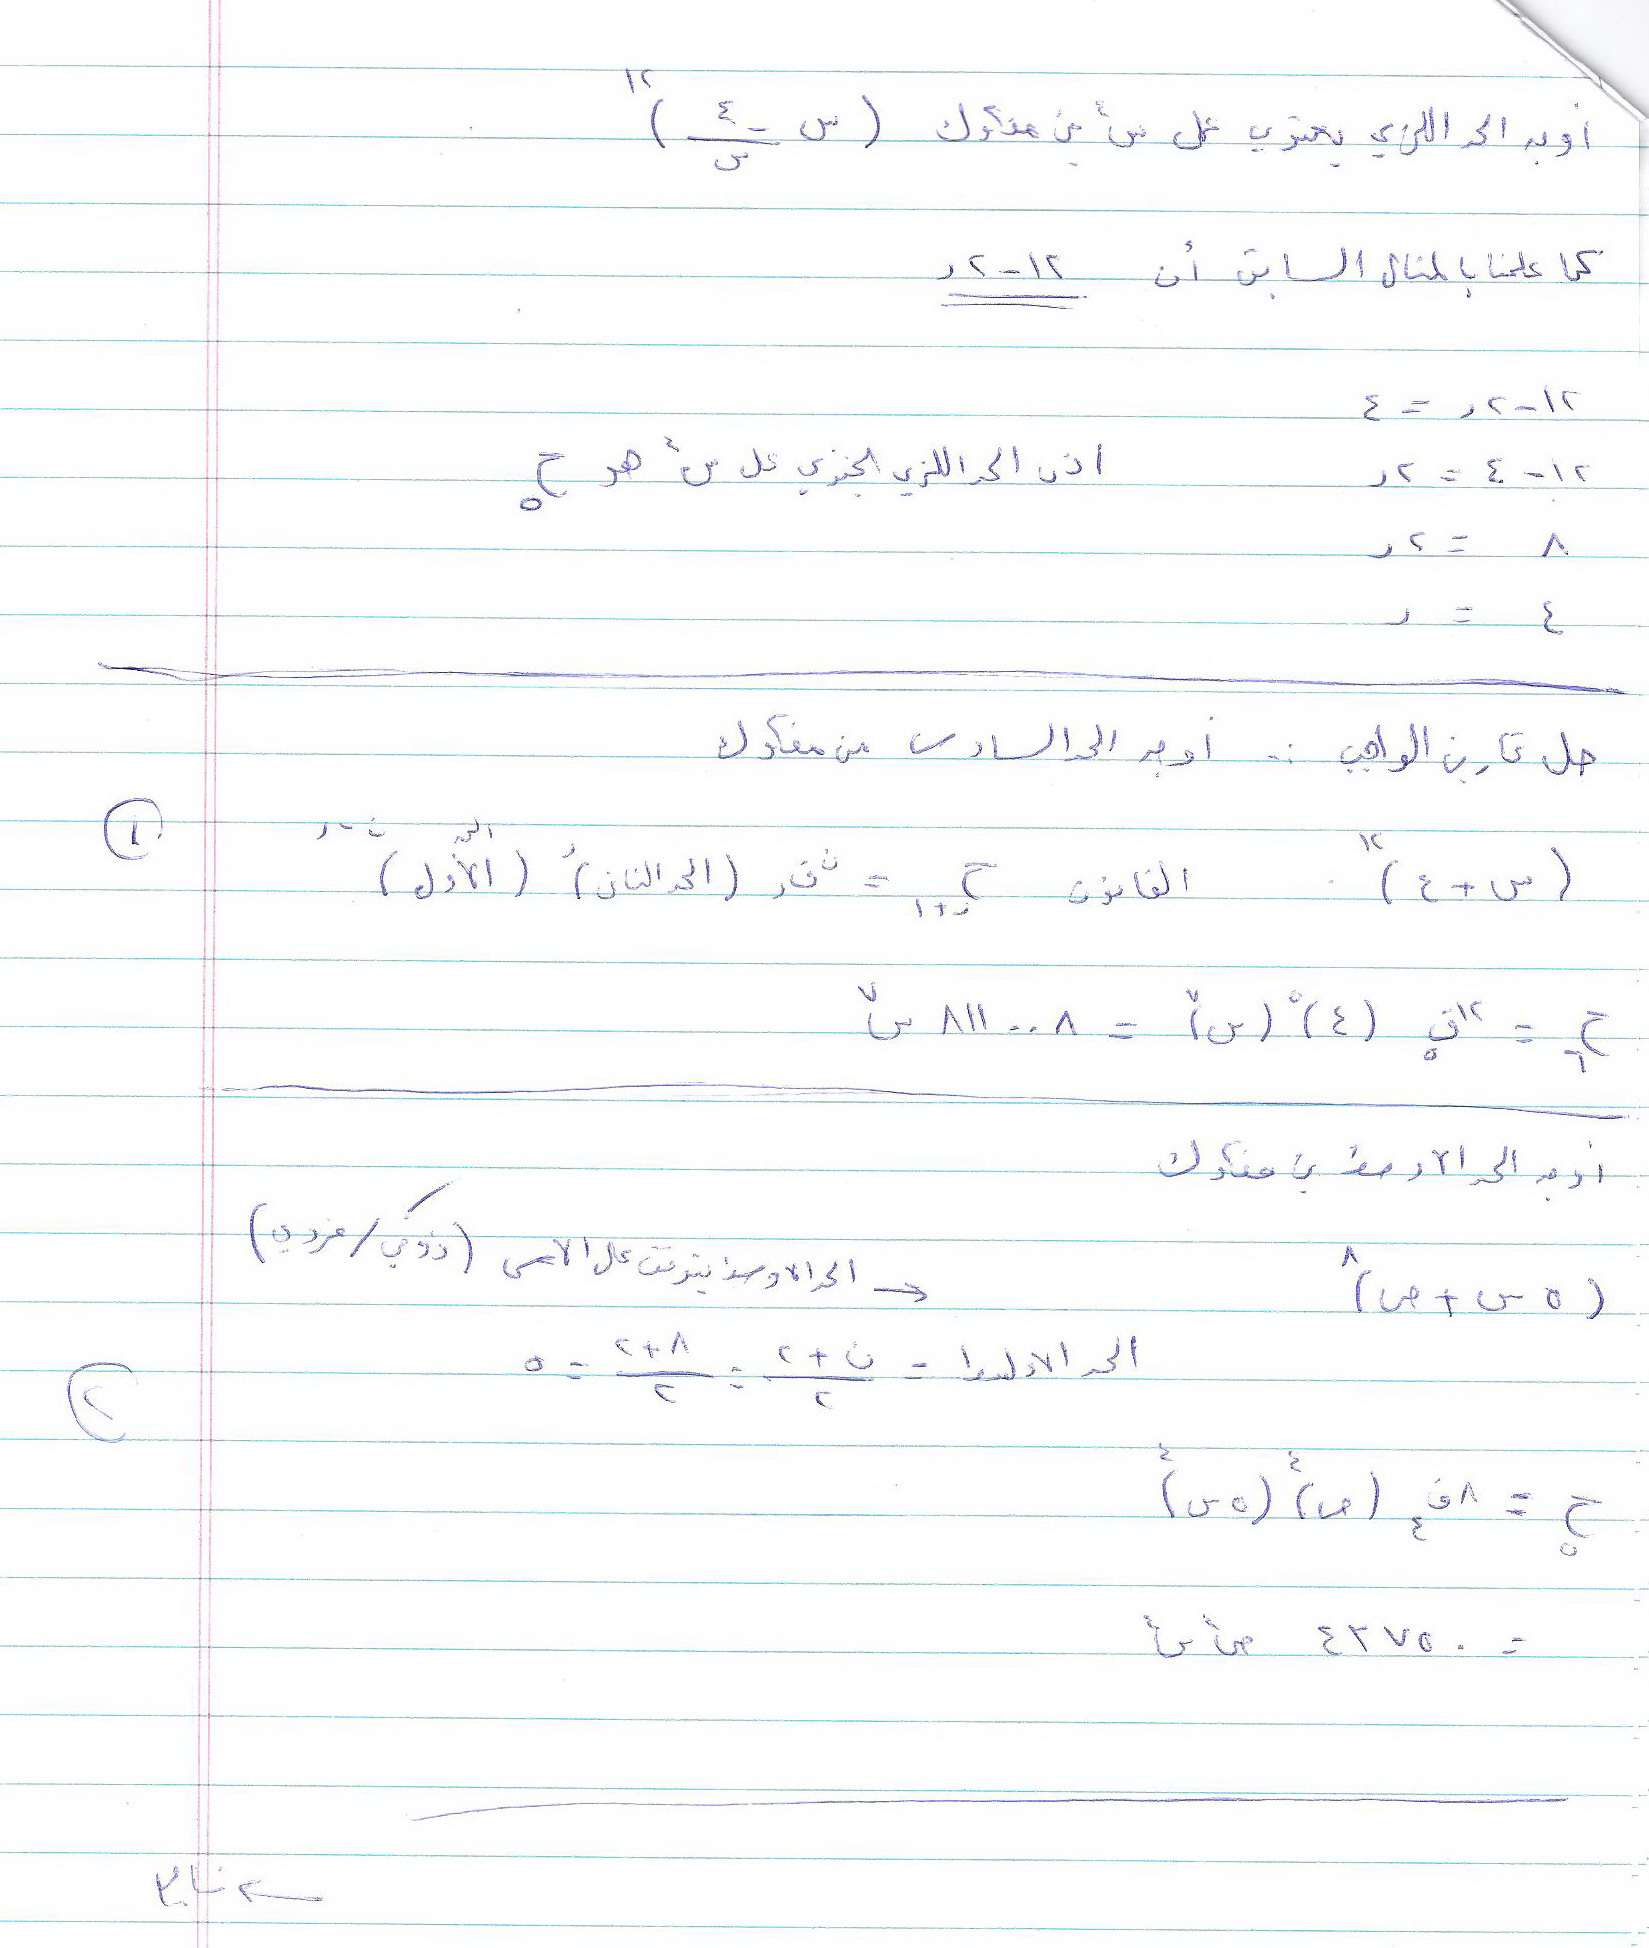 أوجد الحد اللذي يحتوي على س٤ في مفكوك ( س - ٤/س )١٢
كما علمنا بالمثال السابق أن ١٢-٢ر
١٢-٢ر = ٤
١٢-٤ = ٢ر اذن الحد اللذي يحتوي على س٤ هو ح٥
٨ = ٢ر
٤ = ر
حل تمارين الواجب :- أوجد الحد السادس من مفكوك
(س+٤)١٢ القانون ح ر+١ = ن ق ر (الحد الثاني)ر (الحد الأول)ن-ر ①
ح٦ = ١٢ق٥ (٤)٥ (س)٧ = ٨١١٠٠٨ س٧
أوجد الحد الاوسط في مفكوك
(٥س+ص)٨ ← الحد الاوسط يتوقف على الاس (زوجي/فردي)
الحد الاوسط = ن+٢/٢ = ٨+٢/٢ = ٥ ②
ح٥ = ٨ق٤ (ص)٤ (٥س)٤
= ٤٣٧٥٠ ص٤ س٤